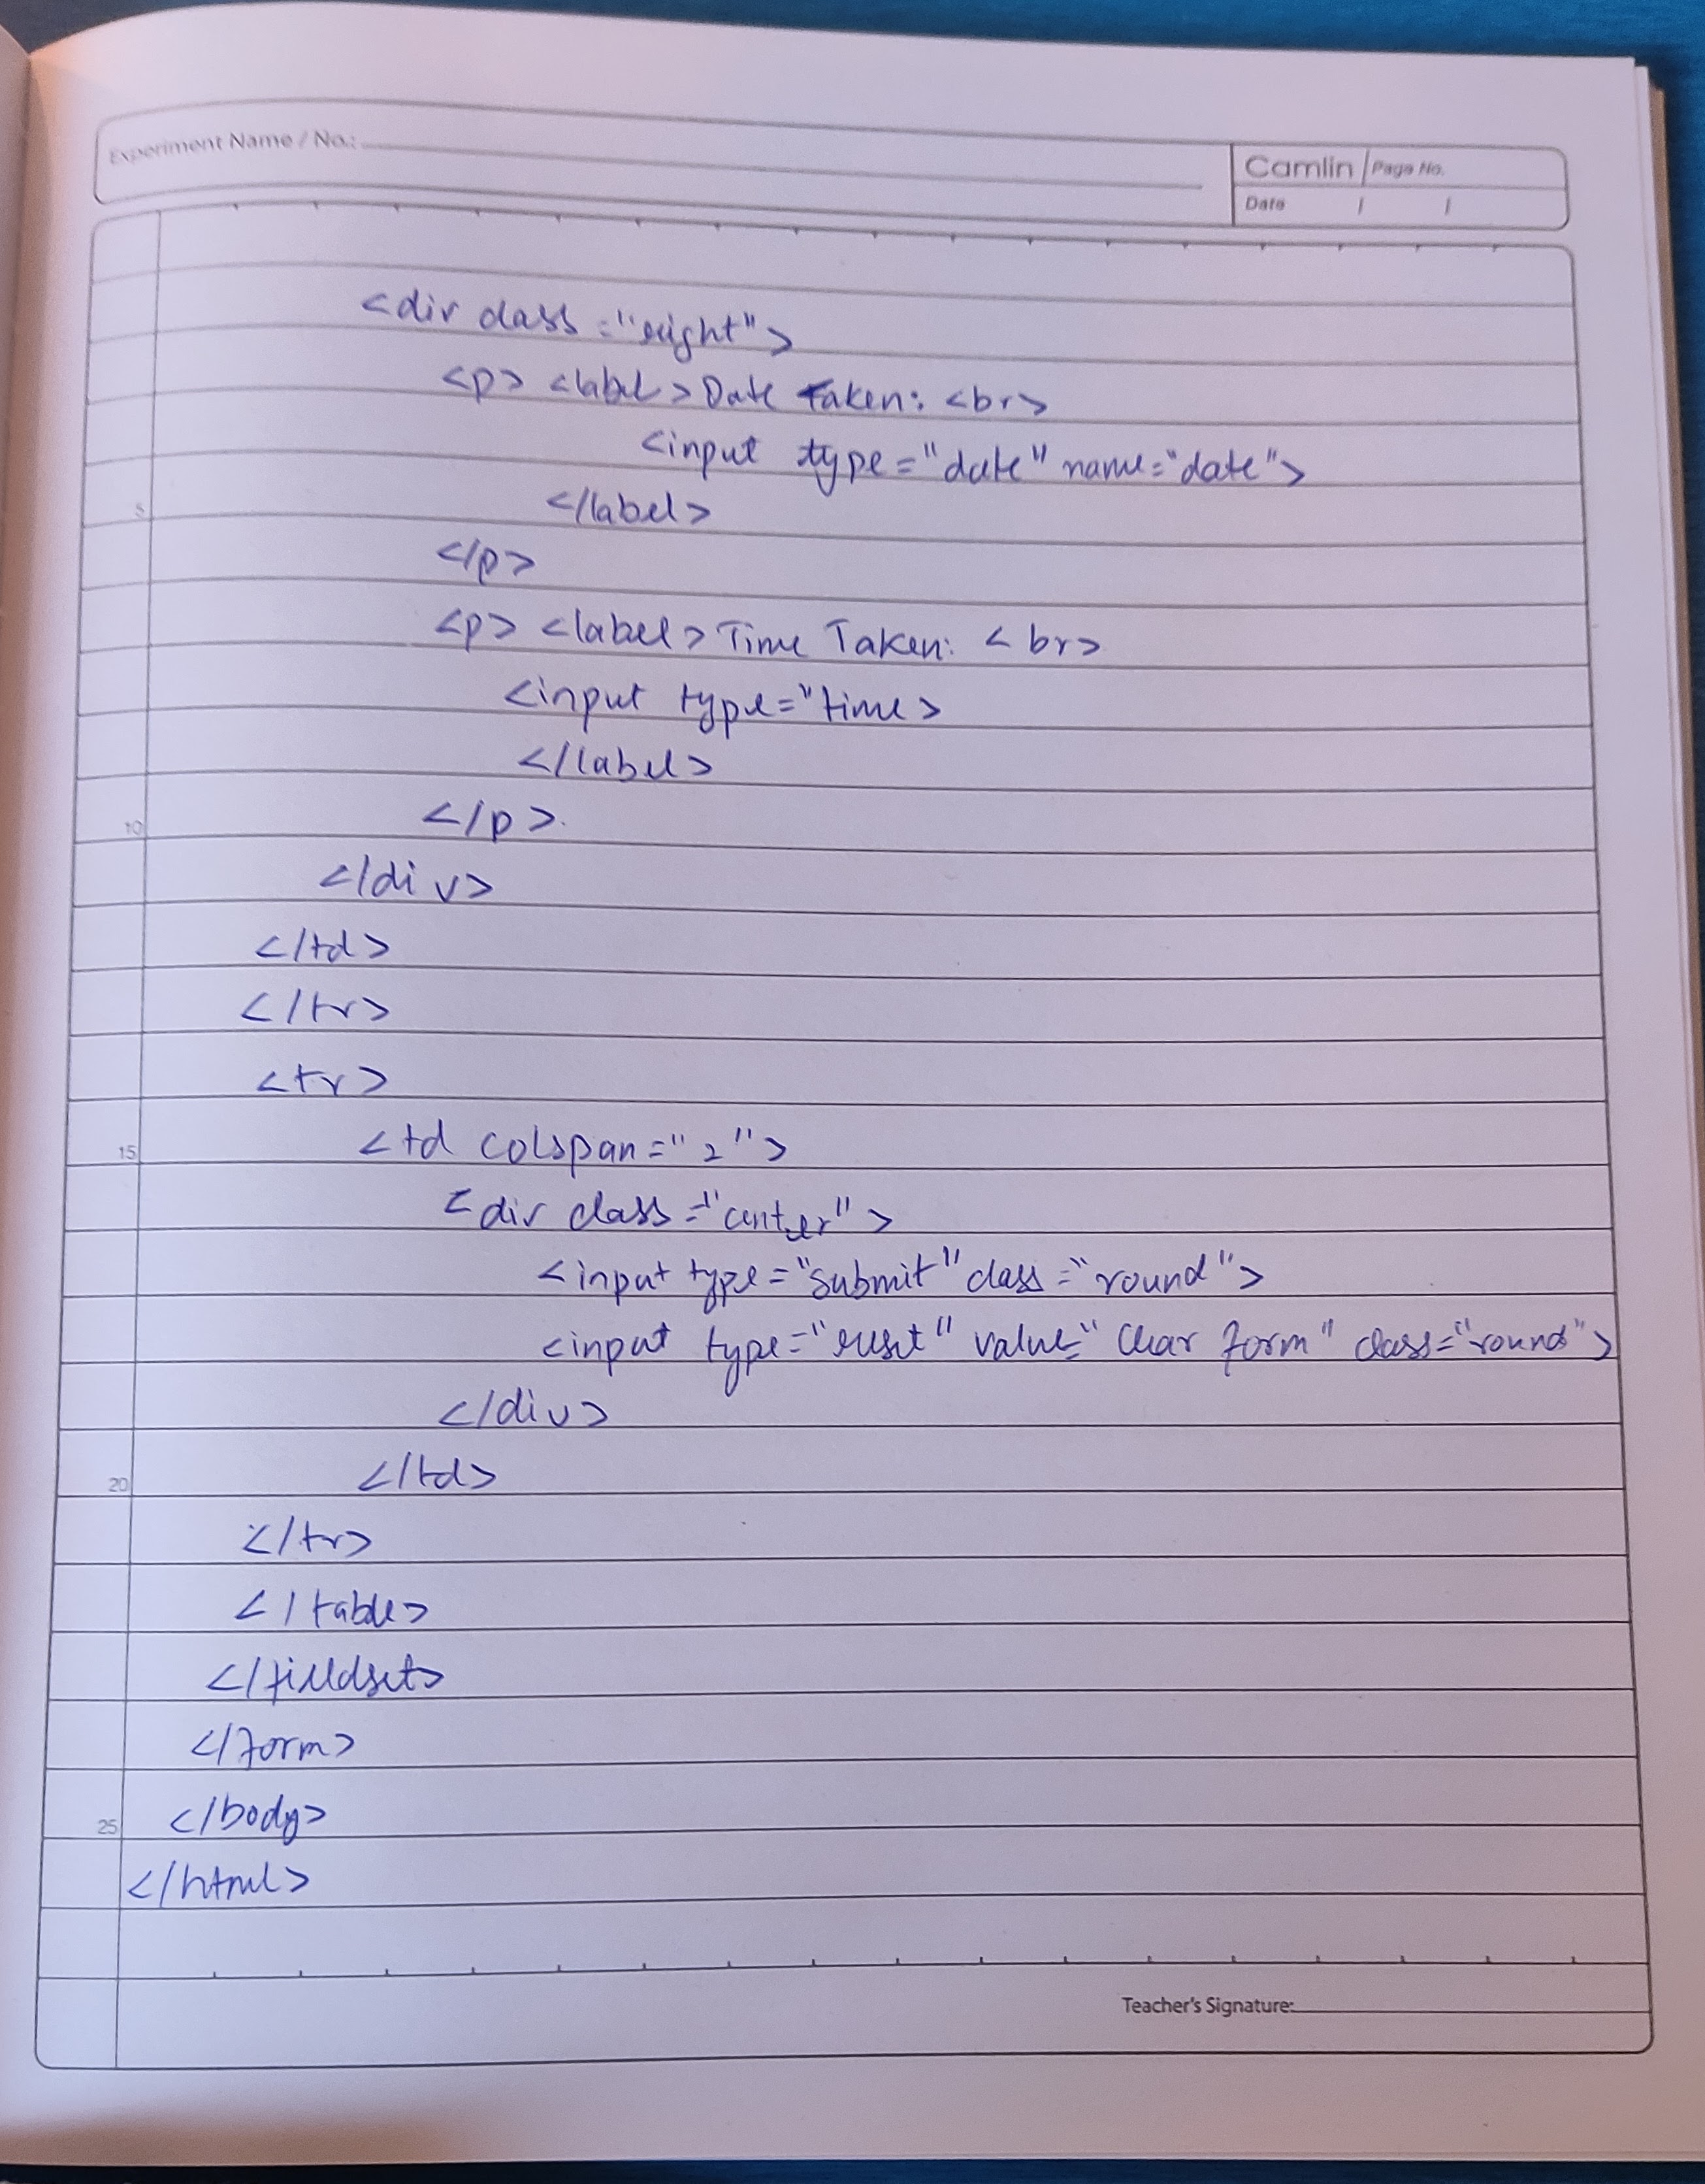 Experiment Name / No.:
Camlin
Page No.
Date / /
<div class="right">
<p> <label> Date Taken: <br>
<input type="date" name="date">
5
</label>
</p>
<p> <label> Time Taken: <br>
<input type="time>
</label>
10
</p>
</div>
</td>
</tr>
<tr>
15
<td colspan="2">
<div class="center">
<input type="submit" class="round">
<input type="reset" value="Clear form" class="round">
</div>
20
</td>
</tr>
</table>
</fieldset>
</form>
25
</body>
</html>
Teacher's Signature: